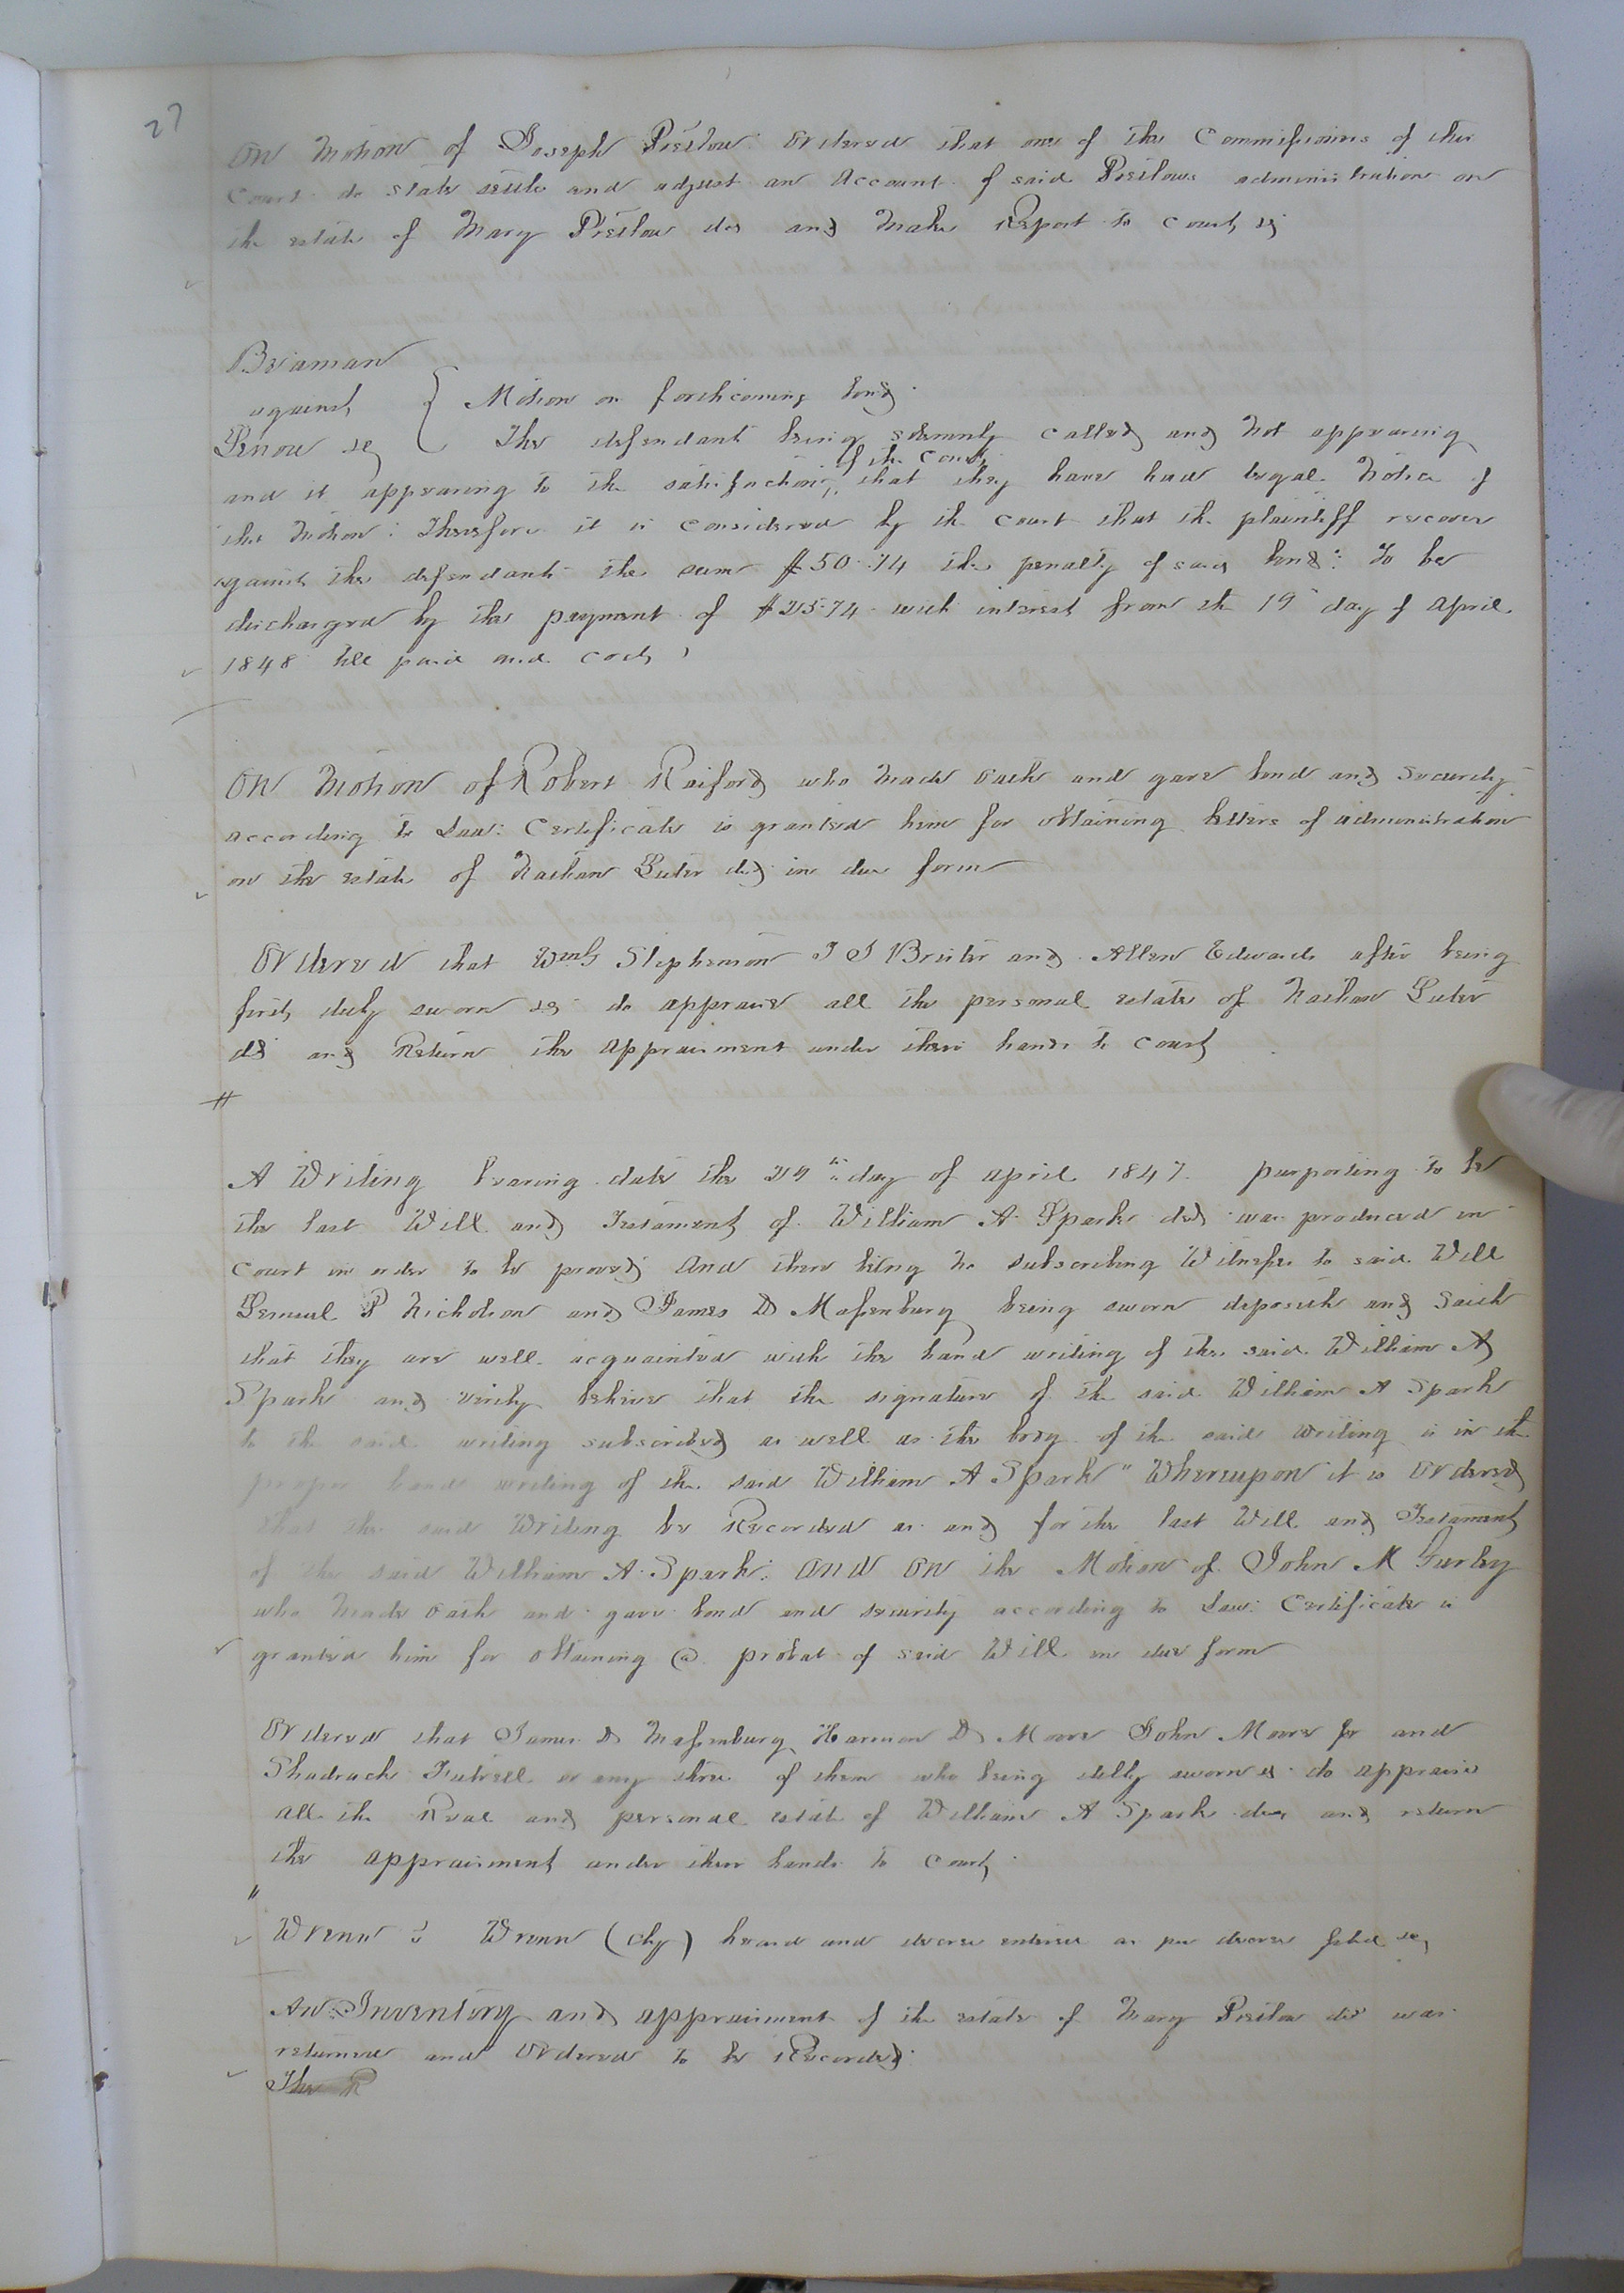 27
On Motion of Joseph Prestow Ordered that one of the Commissioners of this
Court do state settle and adjust an Account of said Prestows administration on
the estate of Mary Prestow des and Make Report to Court &c
Beaman
against } Motion on forthcoming bond.
&c The defendants being solemnly called and Not appearing
and it appearing to the satisfaction of the Court that they have had legal Notice of
this Motion: Therefore it is considered by the Court that the plaintiff recover
against the defendants the sum $50.74 the penalty of said bond: To be
discharged by the payment of $25.74 with interest from the 19 day of April
1848 till paid and costs
On Motion of Robert Raiford who Made Oath and gave bond and security
according to Law: Certificate is granted him for obtaining letters of administration
on the estate of Nathan Luter dcd in due form
Ordered that Stephenson and Allen Edwards after being
first duly sworn &c do appraise all the personal estate of Nathan Luter
dcd and Return the appraisment under their hands to Court
A Writing bearing date the 29th day of April 1847 purporting to be
the last Will and Testament of William A Spark dcd was produced in
Court in order to be proved And there being No subscribing Witnesses to said Will
Lemuel P Nicholson and James D Massenburg being sworn deposeth and Saith
that they are well acquainted with the hand writing of the said William A
Spark and verily believe that the signature of the said William A Spark
to the said writing subscribed as well as the body of the said writing is in the
proper hand writing of the said William A Spark" Whereupon it is Ordered
that the said Writing be Recorded as and for the last Will and Testament
of the said William A Spark: And On the Motion of John M Gurley
who Made Oath and gave bond and security according to Law: Certificate is
granted him for obtaining a probat of said Will in due form
Ordered that James D Massenburg Harmon D Moore John Moore Jr and
Shadrach Futrell or any three of them who being duly sworn &c do appraise
all the Real and personal estate of William A Spark dec and return
the appraisment under their hands to Court
Wrenn : Wrenn (Chy) heard and decree entered as per decree filed &c
An Inventory and appraisment of the estate of Mary Prestow dcd was
returned and Ordered to be Recorded
The R